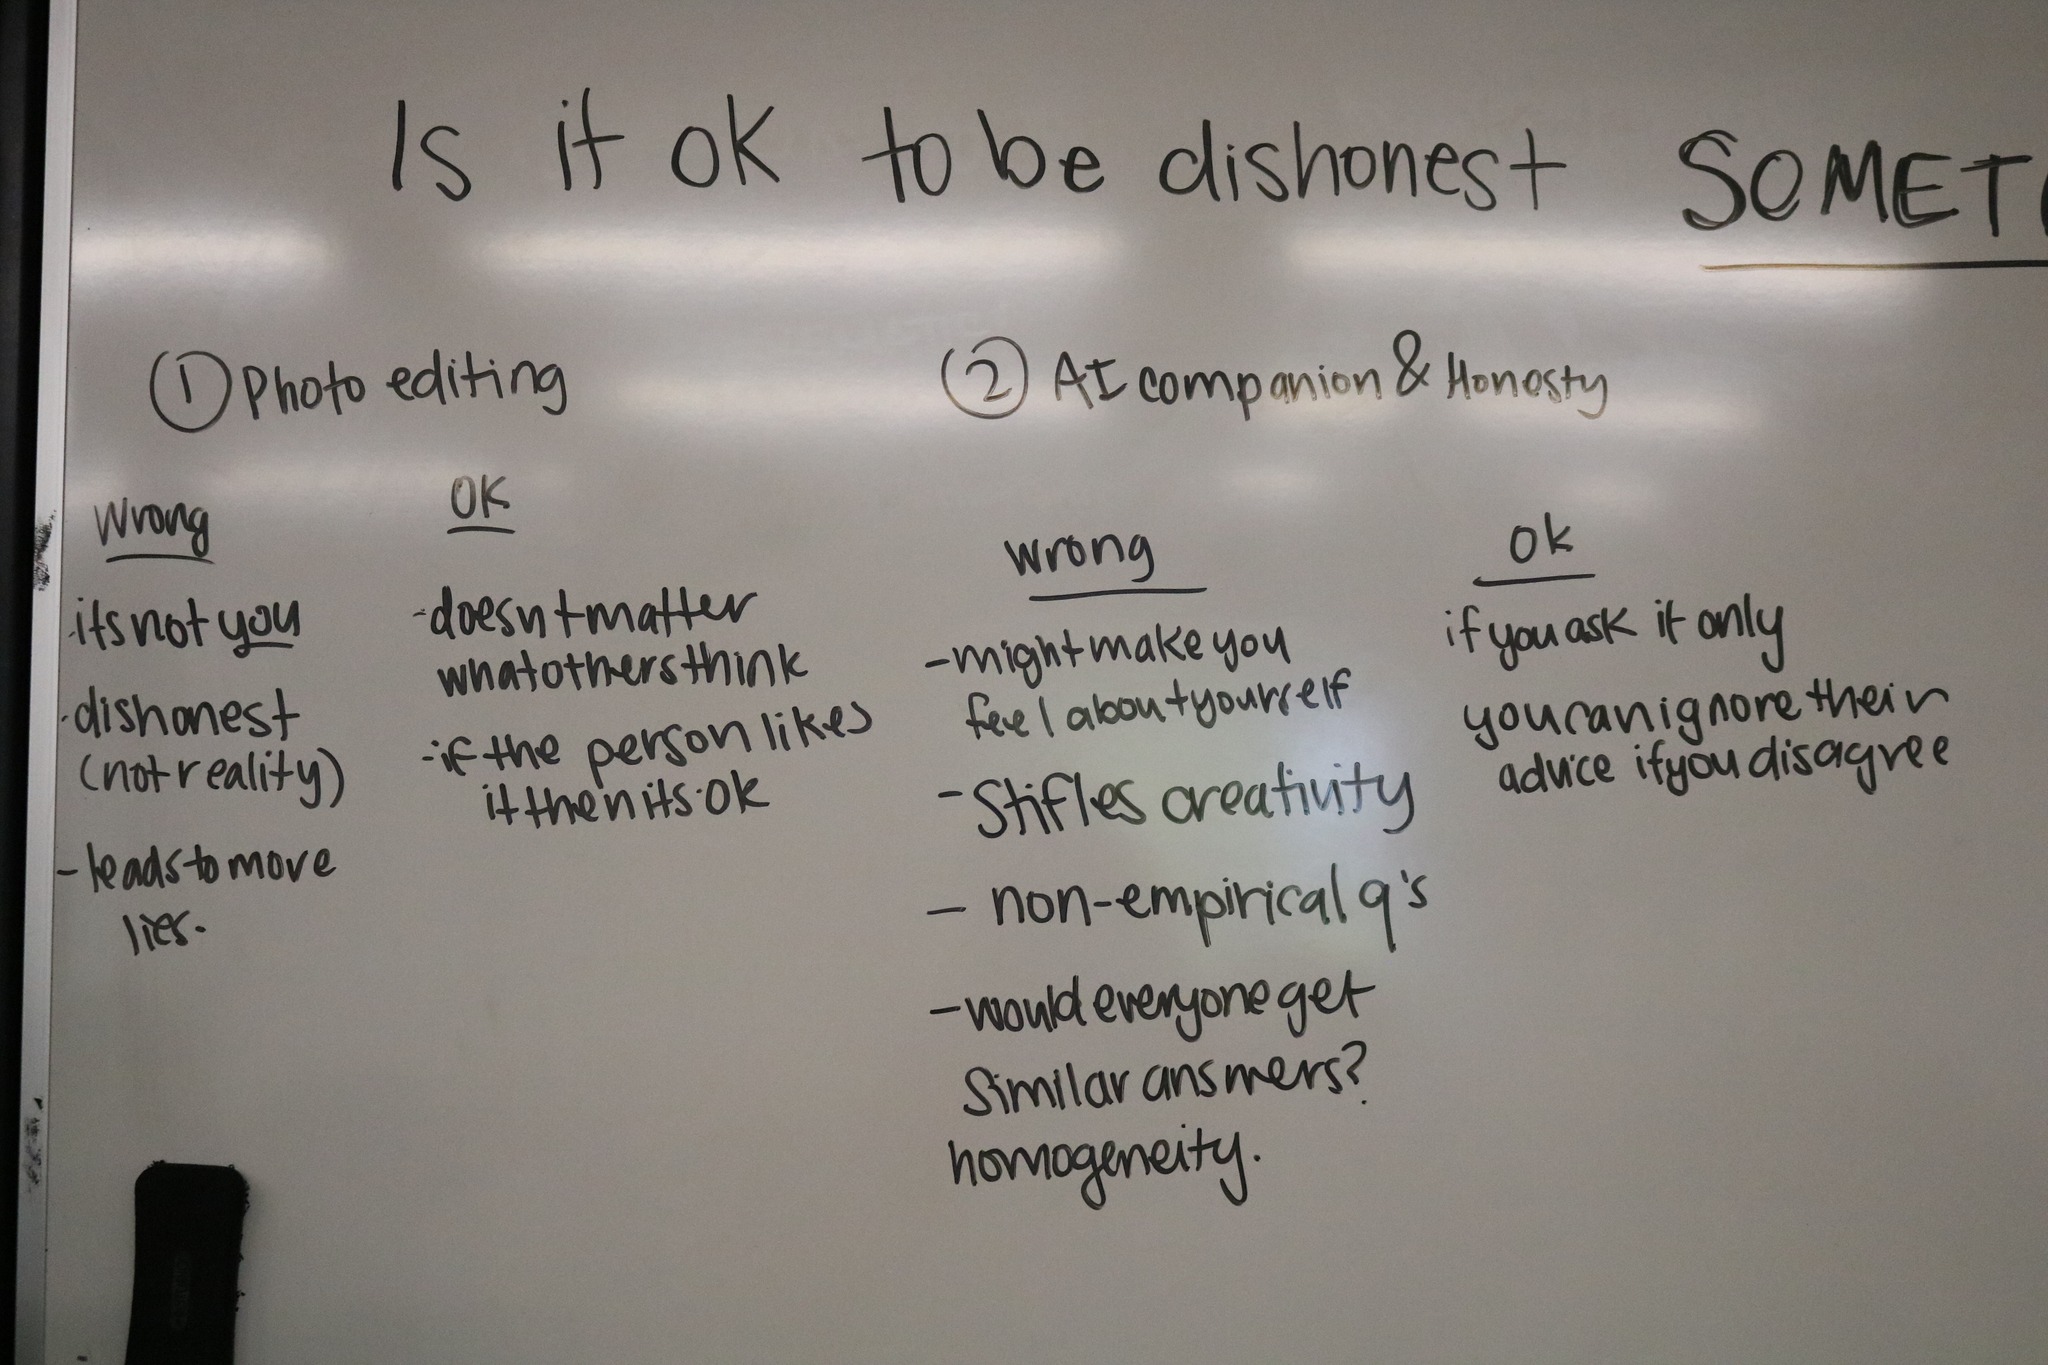 Is it OK to be dishonest SOMET
① Photo editing
Wrong
- its not you
- dishonest
(not reality)
- leads to more
lies.
OK
- doesnt matter
what others think
- if the person likes
it then its OK
② AI companion & Honesty
wrong
- might make you
feel about yourself
- Stifles creativity
- non-empirical q's
- would everyone get
similar answers?
homogeneity.
ok
if you ask it only
you can ignore their
advice if you disagree